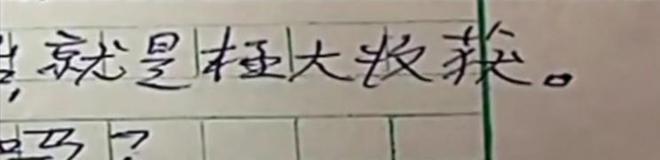 ，就是极大收获。
吗？